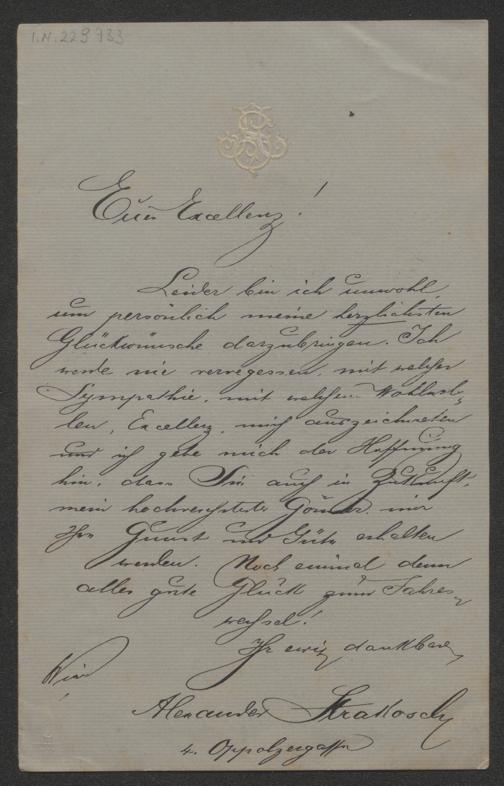 I.N. 229733
Euer Excellenz!
Leider bin ich unwohl,
um persönlich meine herzlichsten
Glückwünsche darzubringen. Ich
werde nie vergessen, mit welcher
Sympathie, mit welchem Wohlwol-
len, Excellenz, mich auszeichneten
und ich gebe mich der Hoffnung
hin, dass Sie auch in Zukunft,
mein hochverehrter Gönner, mir
Ihre Gunst und Güte erhalten
werden. Noch einmal denn
alles gute Glück zum Jahres-
wechsel!
Ihr ewig dankbarer
Wien
Alexander Strakosch
4. Oppolzergasse